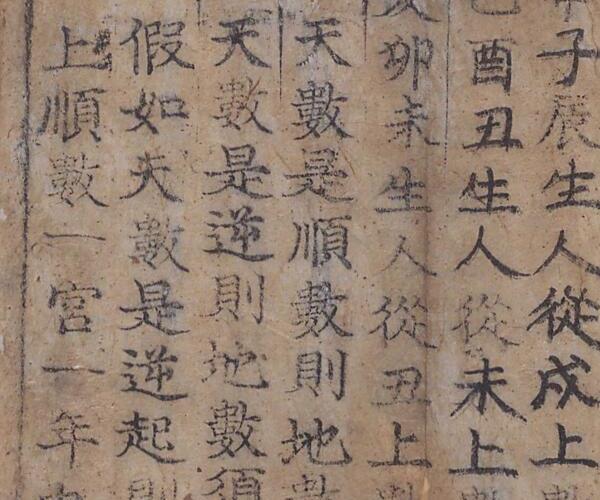 子辰生人從戌上
酉丑生人從未上
卯未生人從丑上
天數是順數則地數
天數是逆則地數須
假如天數是逆起則
上順數一宮一年